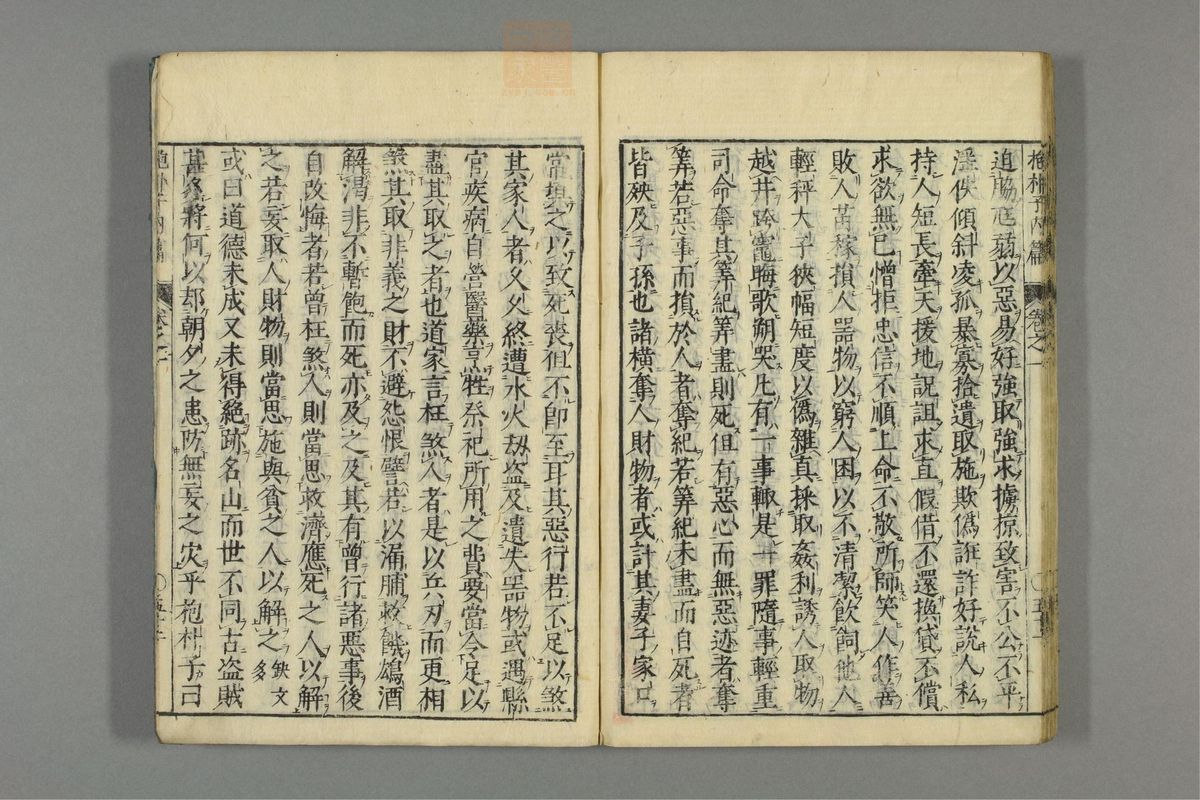 抱朴子內篇 卷之一 〇五十二
迫脇尫弱以惡易好強取強求擄掠致害不公不平
淫佚傾斜凌孤暴寡拾遺取施欺僞誑詐好說人私
持人短長牽天援地説詛求直假借不還換貸不償
求欲無已憎拒忠信不順上命不敬所師笑人作善
敗人苗稼損人器物以窮人困以不清潔飲飼他人
輕秤大子狹幅短度以僞雜真採取姦利誘人取物
越井跨竈晦歌朔哭凡有一事輙是一罪隨事輕重
司命奪其筭紀筭盡則死但有惡心而無惡迹者奪
筭若惡事而損於人者奪紀若筭紀未盡而自死者
皆殃及子孫也諸橫奪人財物者或計其妻子家口
當塡之以致死喪但不卽至耳其惡行若不足以煞
其家人者久久終遭水火刼盜及遺失器物或遇縣
官疾病自營醫藥烹牲祭祀所用之費要當令足以
盡其取之者也道家言枉煞人者是以兵刃而更相
煞其取非義之財不避怨恨譬若以漏脯救饑鴆酒
解渴非不暫飽而死亦及之及其有曾行諸惡事後
自改悔者若曾枉煞人則當思救濟應死之人以解
之若妄取人財物則當思施與貧之人以解之 缺文多
或曰道德未成又未得絕跡名山而世不同古盜賊
甚多將何以却朝夕之患防無妄之灾乎抱朴子曰
抱朴子內篇 卷之一